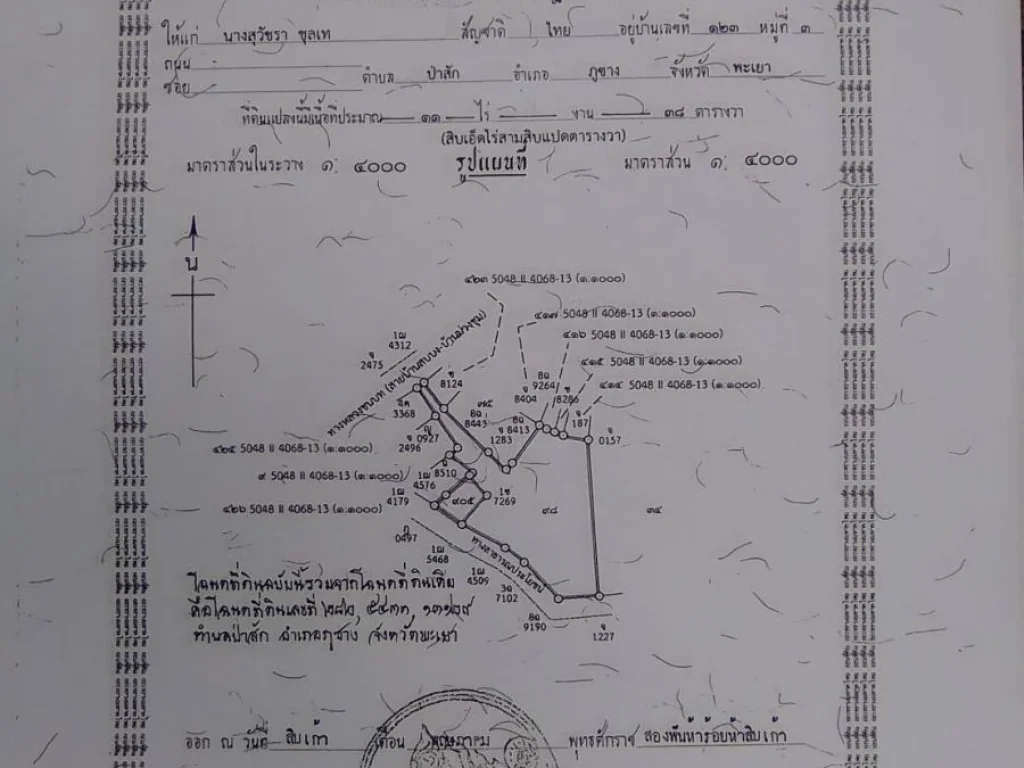 ให้แก่ นางสุวัชรา ชุลเท สัญชาติ ไทย อยู่บ้านเลขที่ ๑๒๓ หมู่ที่ ๓
ถนน -
ซอย ตำบล ป่าสัก อำเภอ ภูซาง จังหวัด พะเยา
ที่ดินแปลงนี้มีเนื้อที่ประมาณ ๑๑ ไร่ งาน ๓๘ ตารางวา
(สิบเอ็ดไร่สามสิบแปดตารางวา)
มาตราส่วนในระวาง ๑: ๔๐๐๐ รูปแผนที่ มาตราส่วน ๑: ๔๐๐๐
น
๔๒๓ 5048 II 4068-13 (๑:๑๐๐๐)
๔๑๗ 5048 II 4068-13 (๑:๑๐๐๐)
๔๑๖ 5048 II 4068-13 (๑:๑๐๐๐)
๔๑๕ 5048 II 4068-13 (๑:๑๐๐๐)
๔๑๔ 5048 II 4068-13 (๑:๑๐๐๐)
1ฌ 4312
2475
8124
3368
ญ 0927
2496
๓๕
8ฉ 8443
1283
8ฉ 8413
8404
8ฉ 9264
8286
187
0157
๔๒๕ 5048 II 4068-13 (๑:๑๐๐๐)
๙ 5048 II 4068-13 (๑:๑๐๐๐)
๔๒๖ 5048 II 4068-13 (๑:๑๐๐๐)
8510
4576
4179
๔๐๕
7269
๙๘
๓๔
0497
5468
4509
7102
9190
1227
ทางสาธารณประโยชน์
โฉนดที่ดินฉบับนี้รวมจากโฉนดที่ดินเดิม
คือโฉนดที่ดินเลขที่
ตำบลป่าสัก อำเภอภูซาง จังหวัดพะเยา
ออก ณ วันที่ สิบเก้า เดือน พฤษภาคม พุทธศักราช สองพันห้าร้อยห้าสิบเก้า